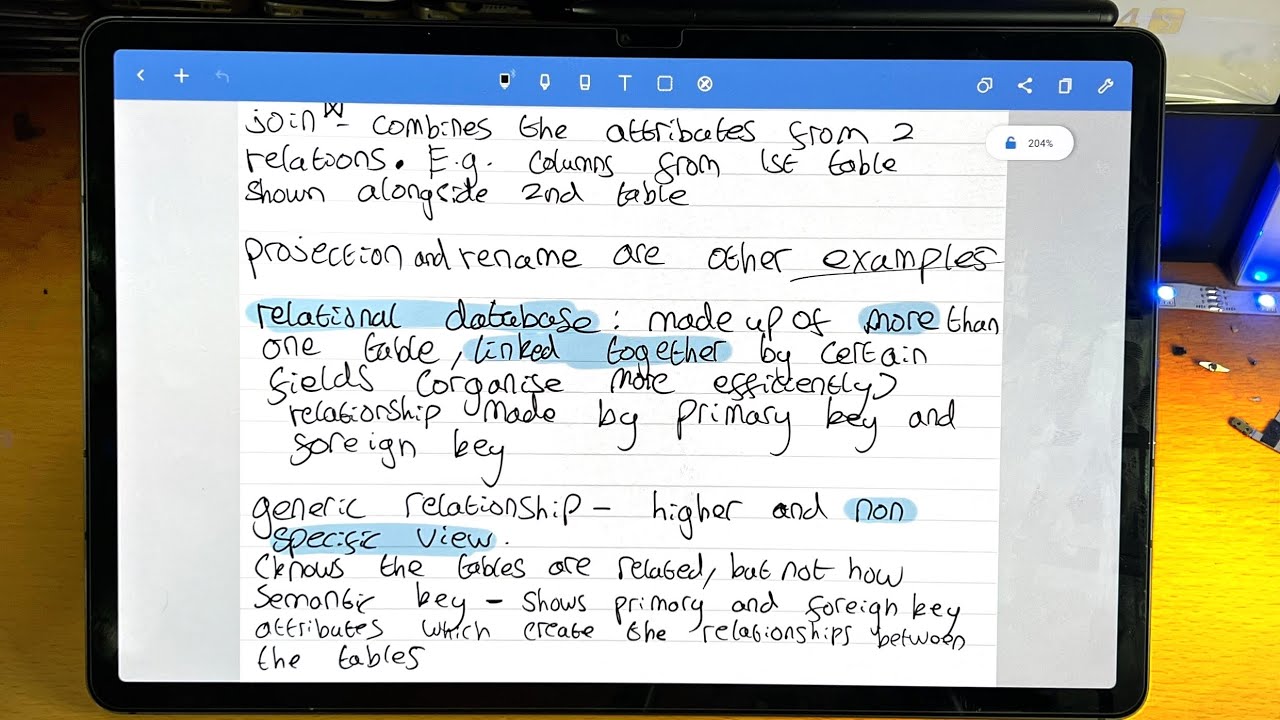 join⋈ - combines the attributes from 2
relations. E.g. columns from 1st table
shown alongside 2nd table
projection and rename are other examples
relational database : made up of more than
one table, linked together by certain
fields (organise more efficiently)
relationship made by primary key and
foreign key
generic relationship - higher and non
specific view.
(knows the tables are related, but not how
Semantic key - shows primary and foreign key
attributes which create the relationships between
the tables
204%
T